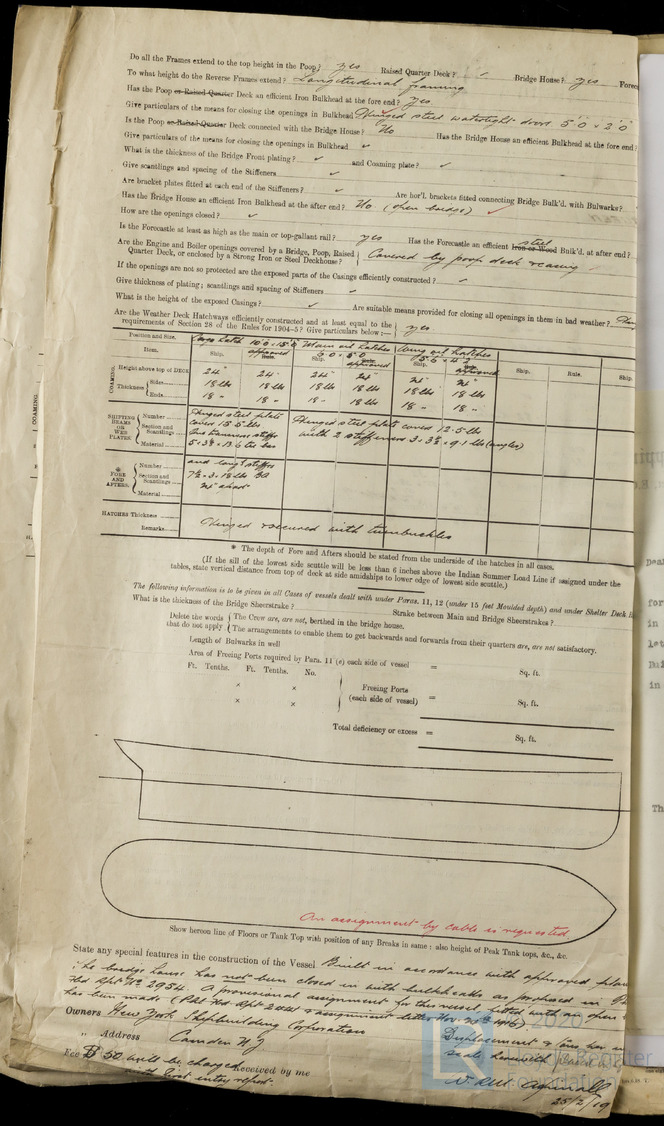 Do all the Frames extend to the top height in the Poop? yes Raised Quarter Deck? Bridge House? yes Forec
To what height do the Reverse Frames extend? Longitudinal framing
Has the Poop or Raised Quarter Deck an efficient Iron Bulkhead at the fore end? yes
Give particulars of the means for closing the openings in Bulkhead Hinged steel watertight doors 5'0 x 2'0
Is the Poop or Raised Quarter Deck connected with the Bridge House? No Has the Bridge House an efficient Bulkhead at the fore end?
Give particulars of the means for closing the openings in Bulkhead
What is the thickness of the Bridge Front plating? and Coaming plate?
Give scantlings and spacing of the Stiffeners
Are bracket plates fitted at each end of the Stiffeners? Are hor'l. brackets fitted connecting Bridge Bulk'd. with Bulwarks?
Has the Bridge House an efficient Iron Bulkhead at the after end? No (open bridge)
How are the openings closed?
Is the Forecastle at least as high as the main or top-gallant rail? yes Has the Forecastle an efficient steel Iron or Wood Bulk'd. at after end?
Are the Engine and Boiler openings covered by a Bridge, Poop, Raised
Quarter Deck, or enclosed by a Strong Iron or Steel Deckhouse? Covered by poop deck & casing
If the openings are not so protected are the exposed parts of the Casings efficiently constructed?
Give thickness of plating; scantlings and spacing of Stiffeners
What is the height of the exposed Casings? Are suitable means provided for closing all openings in them in bad weather?
Are the Weather Deck Hatchways efficiently constructed and at least equal to the
requirements of Section 28 of the Rules for 1904-5? Give particulars below:— yes
Position and Size. Cargo hatch 10'0 x 15'0 Main oil hatches 5'0 x 5'0 Wing oil hatches
Item. Ship. approved Ship. approved Ship. approved Ship. Rule. Ship.
COAMING
Height above top of DECK 24" 24" 24" 24" 24" 24"
Thickness Sides 18 lbs 18 lbs 18 lbs 18 lbs 18 lbs 18 lbs
Ends 18 " 18 " 18 " 18 " 18 " 18 "
SHIFTING BEAMS OR WEB PLATES.
Number Hinged steel plate Hinged steel plate covers 12.5 lbs
Section and Scantlings covers 15.5 lbs with 2 stiffeners 3 x 3½ x 9.1 lbs (angles)
Material
FORE AND AFTERS.
Number and long'l stiffrs
Section and Scantlings
Material
HATCHES Thickness
Remarks Hinged & secured with turnbuckles
* The depth of Fore and Afters should be stated from the underside of the hatches in all cases.
(If the sill of the lowest side scuttle will be less than 6 inches above the Indian Summer Load Line if assigned under the
tables, state vertical distance from top of deck at side amidships to lower edge of lowest side scuttle.)
The following information is to be given in all Cases of vessels dealt with under Paras. 11, 12 (under 15 feet Moulded depth) and under Shelter Deck
What is the thickness of the Bridge Sheerstrake? Strake between Main and Bridge Sheerstrakes?
Delete the words that do not apply
The Crew are, are not, berthed in the bridge house.
The arrangements to enable them to get backwards and forwards from their quarters are, are not satisfactory.
Length of Bulwarks in well
Area of Freeing Ports required by Para. 11 (e) each side of vessel = Sq. ft.
Ft. Tenths. Ft. Tenths. No.
× ×
Freeing Ports (each side of vessel) = Sq. ft.
× ×
Total deficiency or excess = Sq. ft.
An assignment by cable is requested
Show hereon line of Floors or Tank Top with position of any Breaks in same: also height of Peak Tank tops, &c., &c.
State any special features in the construction of the Vessel Built in accordance with approved plans
The bridge house has not been closed in with bulkheads as proposed in
Rpt No 2954. A provisional assignment for this vessel fitted with an open
has been made
Owners New York Shipbuilding Corporation
" Address Camden N.J. Displacement &
Fee $50 will be charged Received by me scale herewith
with first entry report.
25/2/19
2020
Lloyd's Register
Foundation